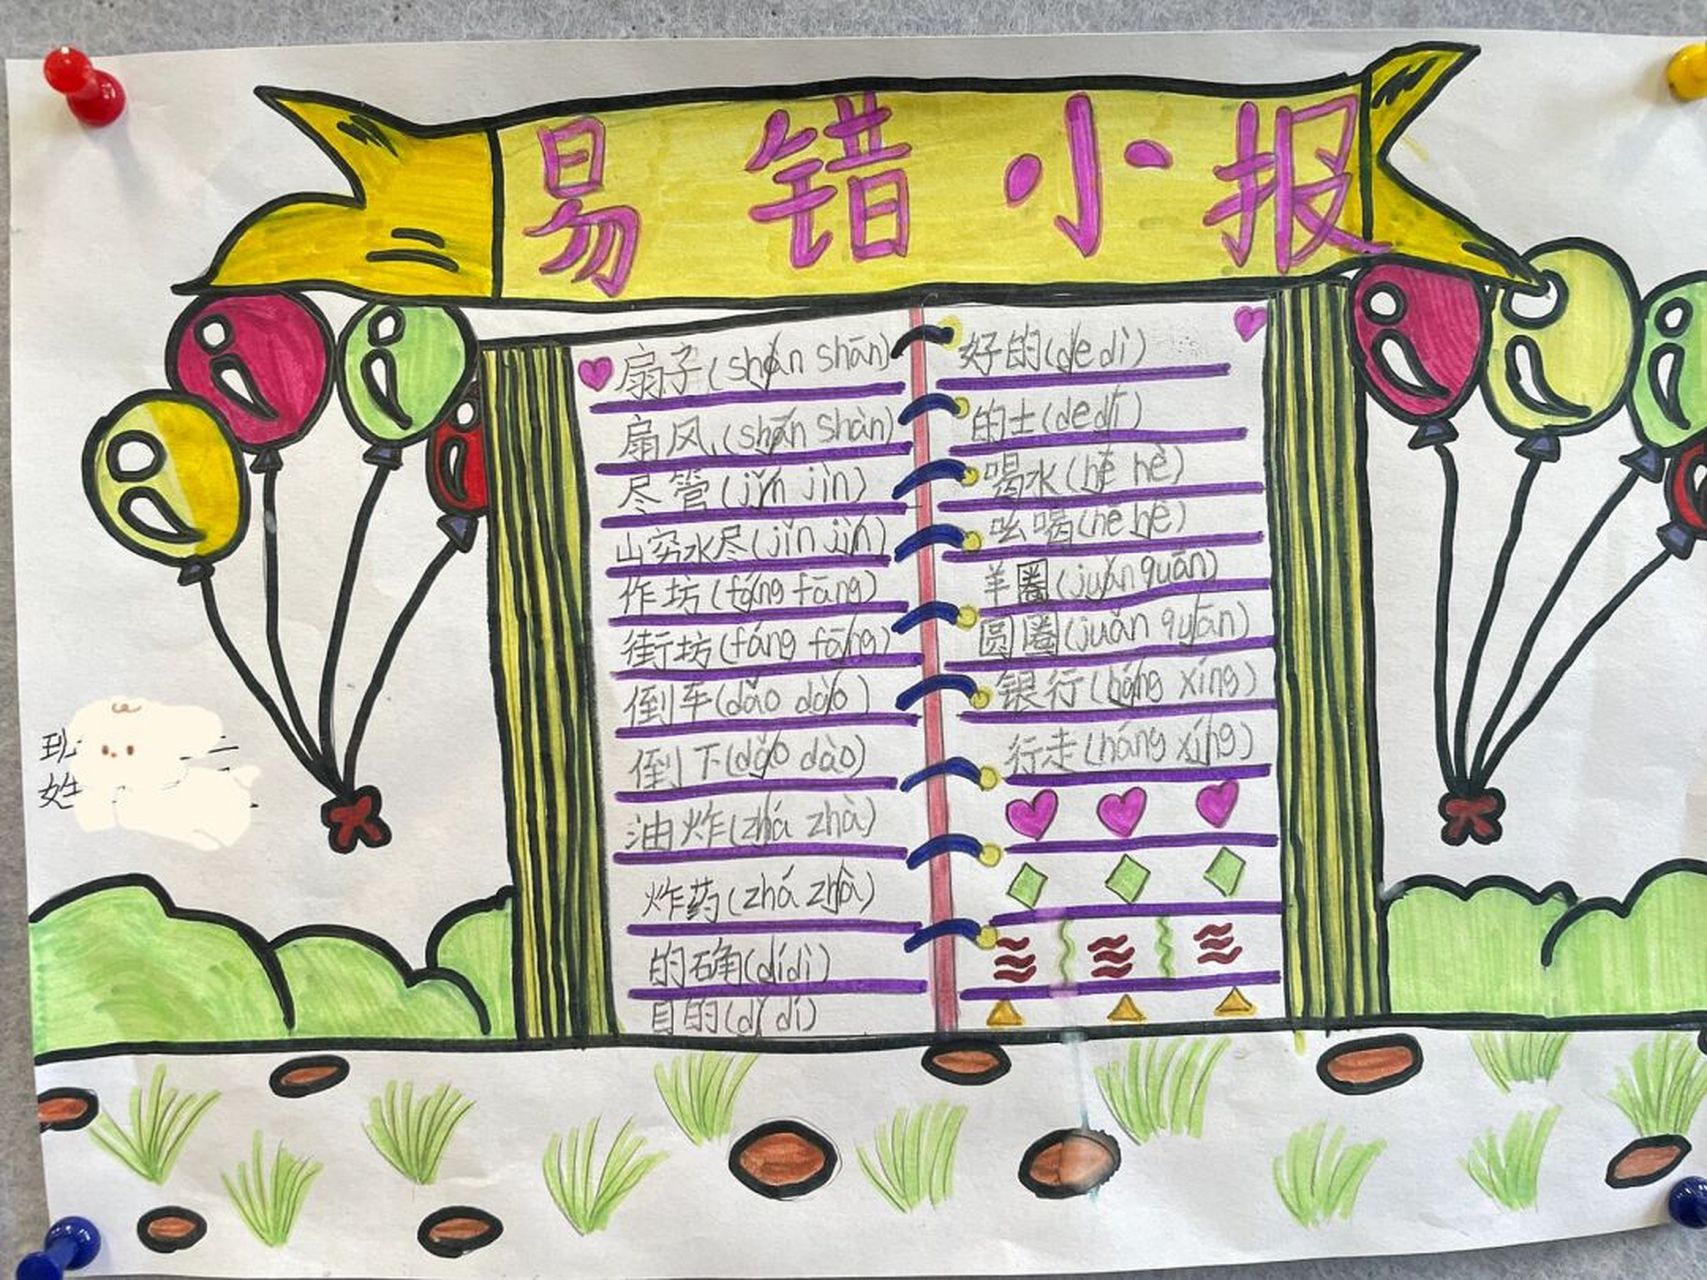 易错小报
扇子(shān shān)
扇风(shān shàn)
尽管(jǐn jìn)
山穷水尽(jǐn jìn)
作坊(fáng fāng)
街坊(fáng fāng)
倒车(dǎo dào)
倒下(dǎo dào)
油炸(zhá zhà)
炸药(zhá zhà)
的确(dídì)
目的(dí dì)
好的(de dì)
的士(de dī)
喝水(hē hè)
吆喝(hē hè)
羊圈(juàn quān)
圆圈(juàn quān)
银行(háng xíng)
行走(háng xíng)
班
姓